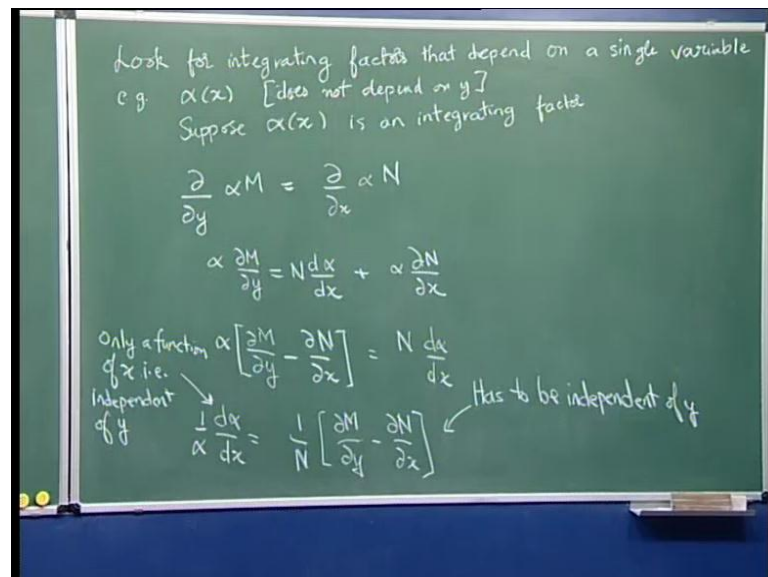 Look for integrating factors that depend on a single variable
e g. α(x) [does not depend on y]
Suppose α(x) is an integrating factor
∂/∂y αM = ∂/∂x αN
α ∂M/∂y = N dα/dx + α ∂N/∂x
α[∂M/∂y - ∂N/∂x] = N dα/dx
Only a function
of x i.e.
independent
of y
1/α dα/dx = 1/N [∂M/∂y - ∂N/∂x]
Has to be independent of y